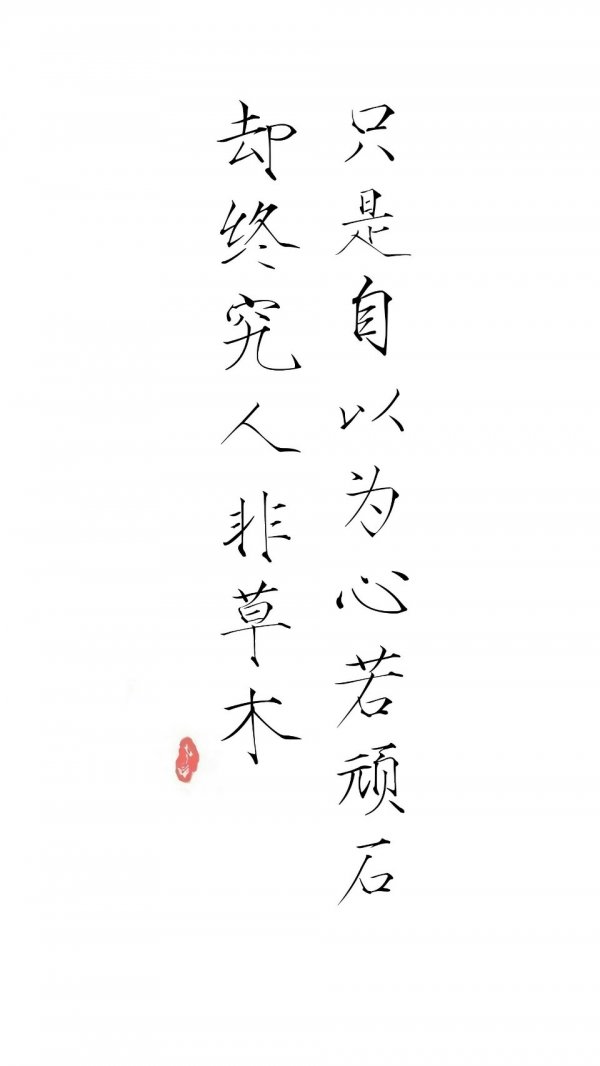 只是自以为心若顽石
却终究人非草木